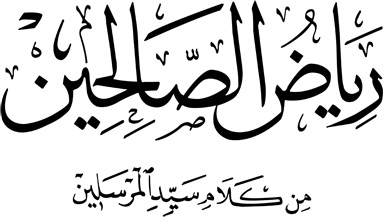 رِيَاضُ الصَّالِحِين
مِن كَلَامِ سَيِّدِ الْمُرْسَلِين